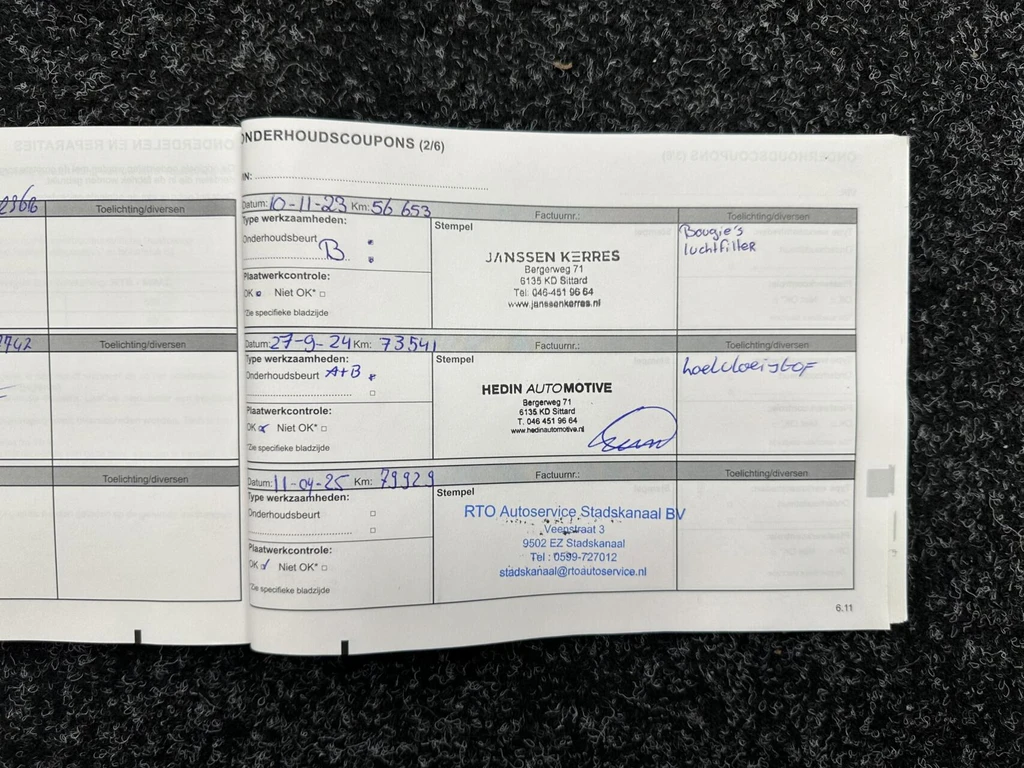 Toelichting/diversen
742
Toelichting/diversen
Toelichting/diversen
NDERHOUDSCOUPONS (2/6)
IN:
Datum: 10-11-23 Km: 56 653 Factuurnr.: Toelichting/diversen
Type werkzaamheden:
Onderhoudsbeurt B
Plaatwerkcontrole:
OK Niet OK*
*Zie specifieke bladzijde
Stempel
JANSSEN KERRES
Bergerweg 71
6135 KD Sittard
Tel: 046-451 96 64
www.janssenkerres.nl
Bougie's
luchtfilter
Datum: 27-9-24 Km: 73541 Factuurnr.: Toelichting/diversen
Type werkzaamheden:
Onderhoudsbeurt A+B
Plaatwerkcontrole:
OK Niet OK*
*Zie specifieke bladzijde
Stempel
HEDIN AUTOMOTIVE
Bergerweg 71
6135 KD Sittard
T. 046 451 96 64
www.hedinautomotive.nl
koelvloeistof
Datum: 11-04-25 Km: 79929 Factuurnr.: Toelichting/diversen
Type werkzaamheden:
Onderhoudsbeurt
Plaatwerkcontrole:
OK Niet OK*
*Zie specifieke bladzijde
Stempel
RTO Autoservice Stadskanaal BV
Veenstraat 3
9502 EZ Stadskanaal
Tel : 0599-727012
stadskanaal@rtoautoservice.nl
6.11